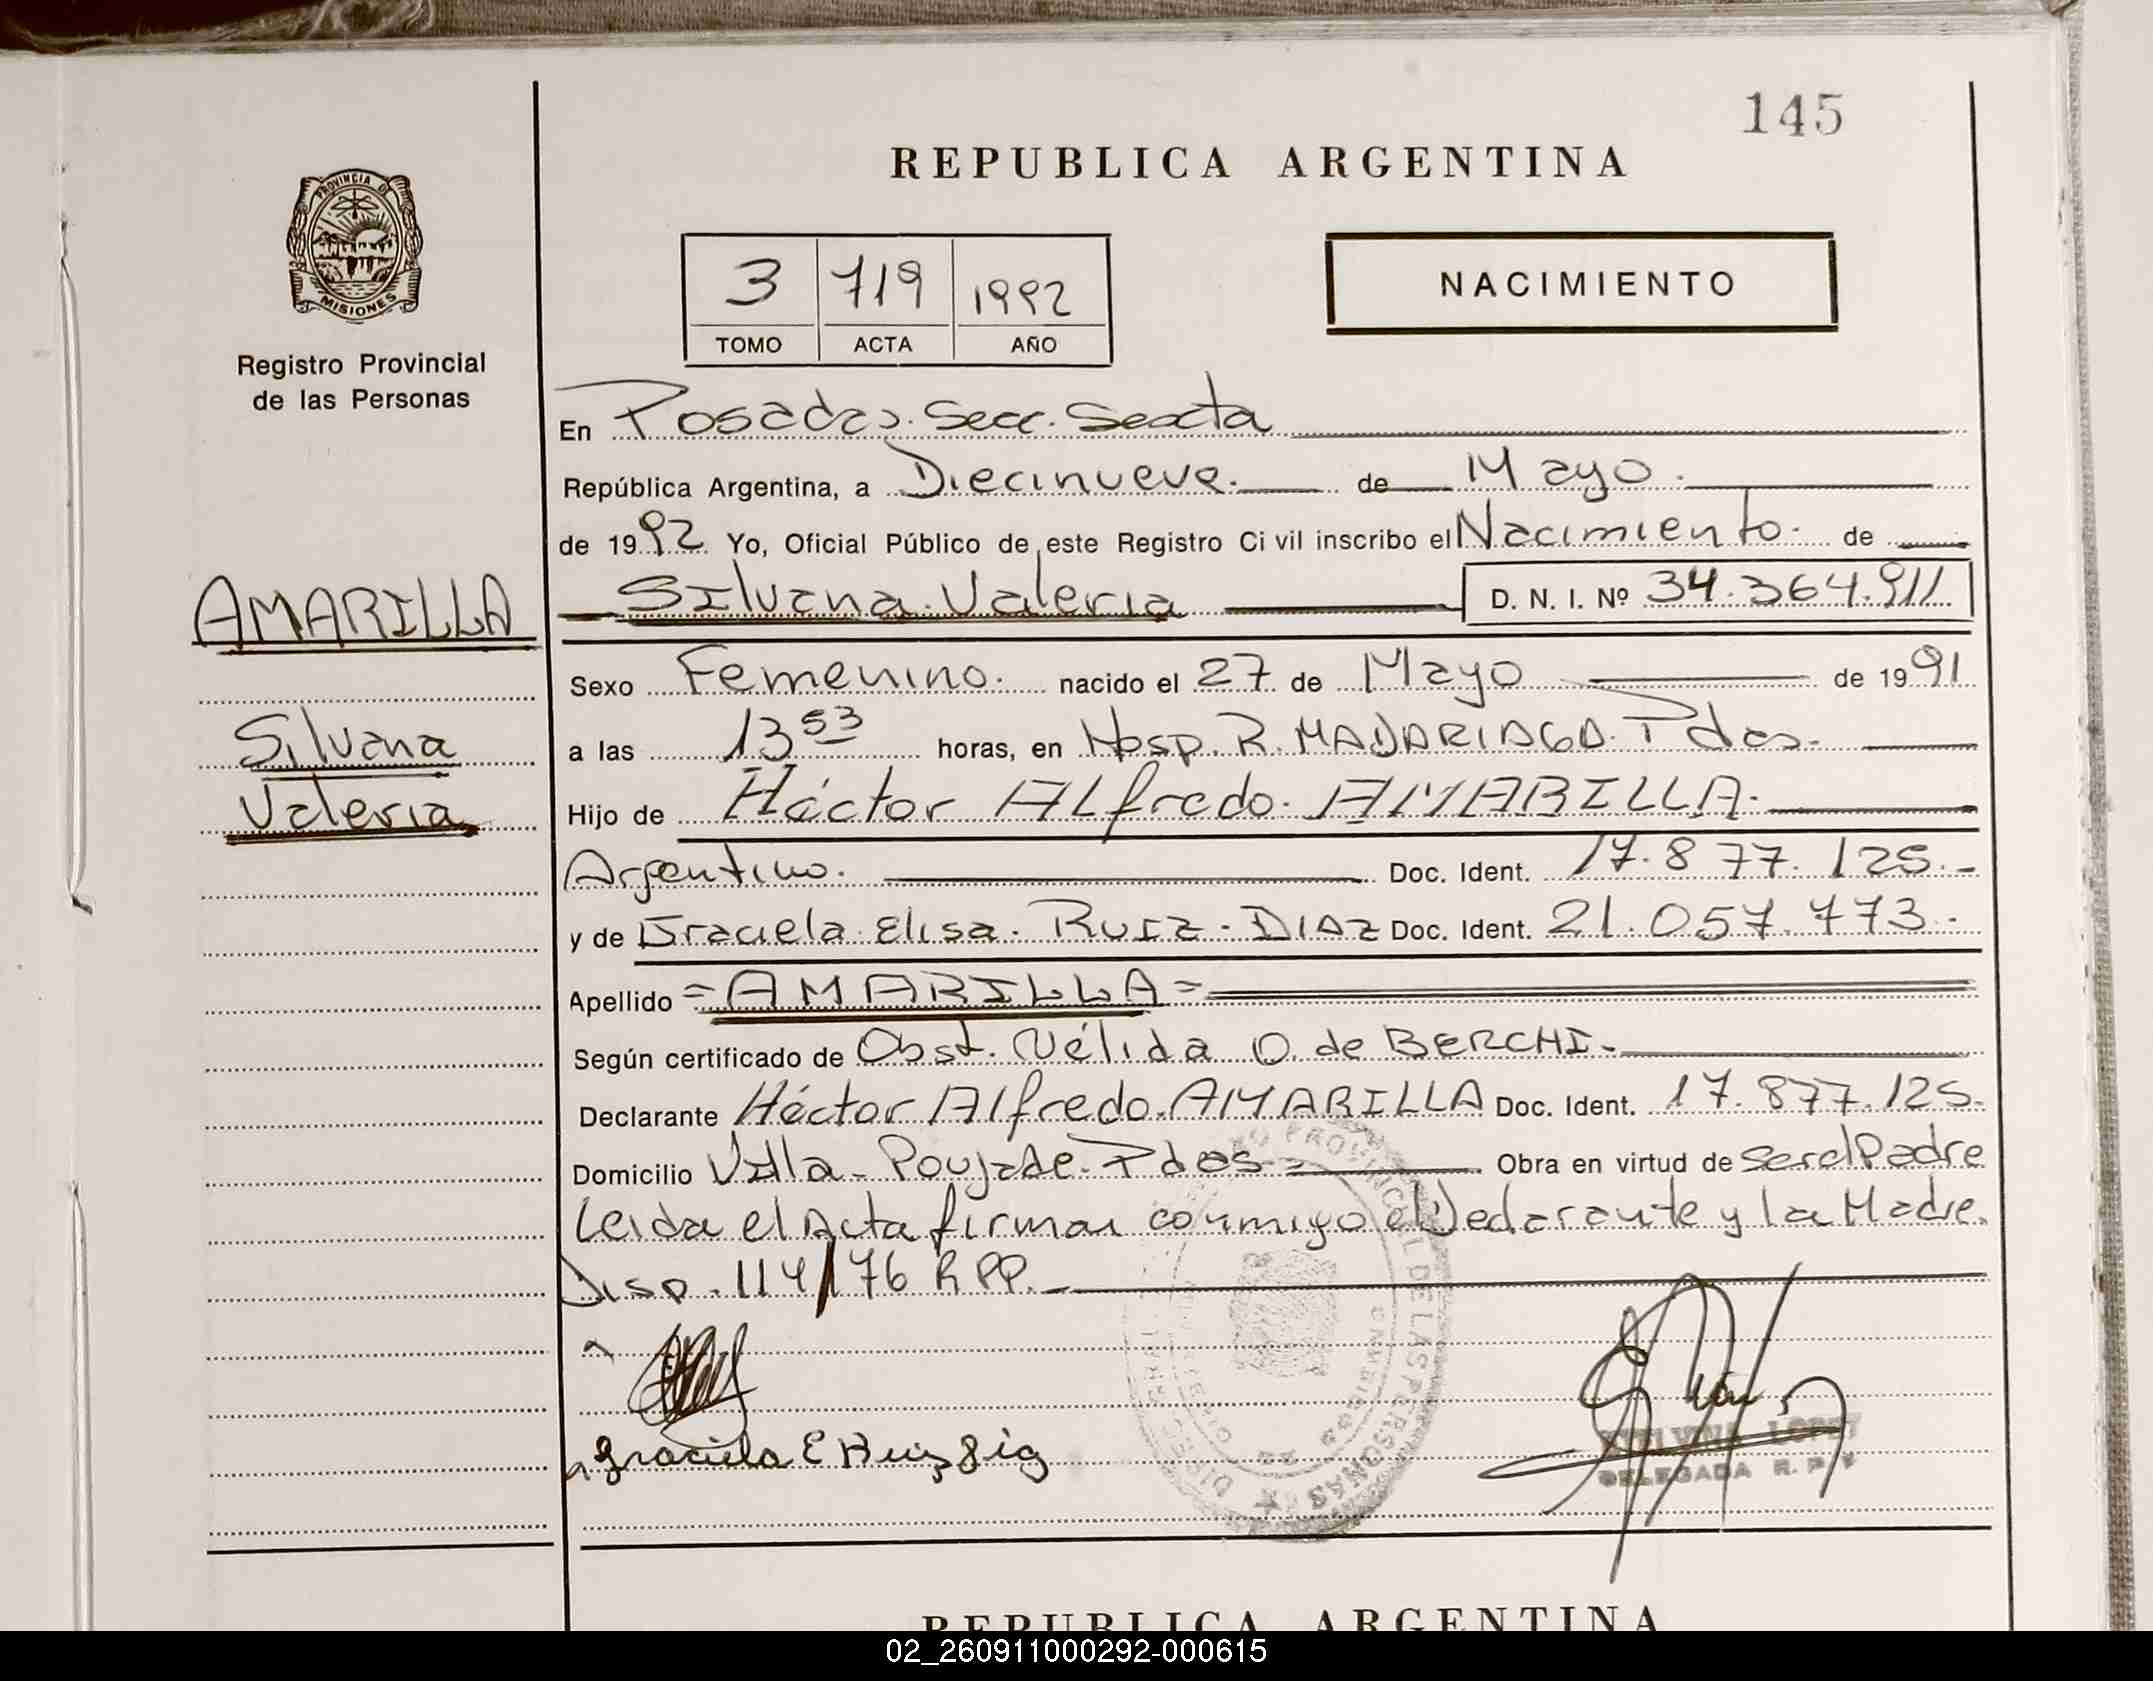 145
REPUBLICA ARGENTINA
PROVINCIA DE
MISIONES
Registro Provincial
de las Personas
3 719 1992
TOMO ACTA AÑO
NACIMIENTO
En Posadas. Secc. Sexta
República Argentina, a Diecinueve. de Mayo.
de 1992 Yo, Oficial Público de este Registro Civil inscribo el Nacimiento. de
Silvana Valeria D. N. I. Nº 34.364.911
AMARILLA
Silvana
Valeria
Sexo Femenino. nacido el 27 de Mayo de 1991
a las 13 53 horas, en Hosp. R. MADARIAGA. Pdas.
Hijo de Héctor Alfredo. AMARILLA.
Argentino. Doc. Ident. 17.877.125.-
y de Graciela Elisa. RUIZ - DIAZ Doc. Ident. 21.057.773.-
Apellido =AMARILLA=
Según certificado de Obst. Nélida O. de BERCHI.-
Declarante Héctor Alfredo. AMARILLA Doc. Ident. 17.877.125.
Domicilio Villa - Poujade. Pdas- Obra en virtud de ser el Padre
Leida el Acta firman conmigo el Declarante y la Madre.
Disp. 114/76 R.PP.-
Graciela E Ruiz
DELEGADA R. P. P
REPUBLICA ARGENTINA
02_260911000292-000615